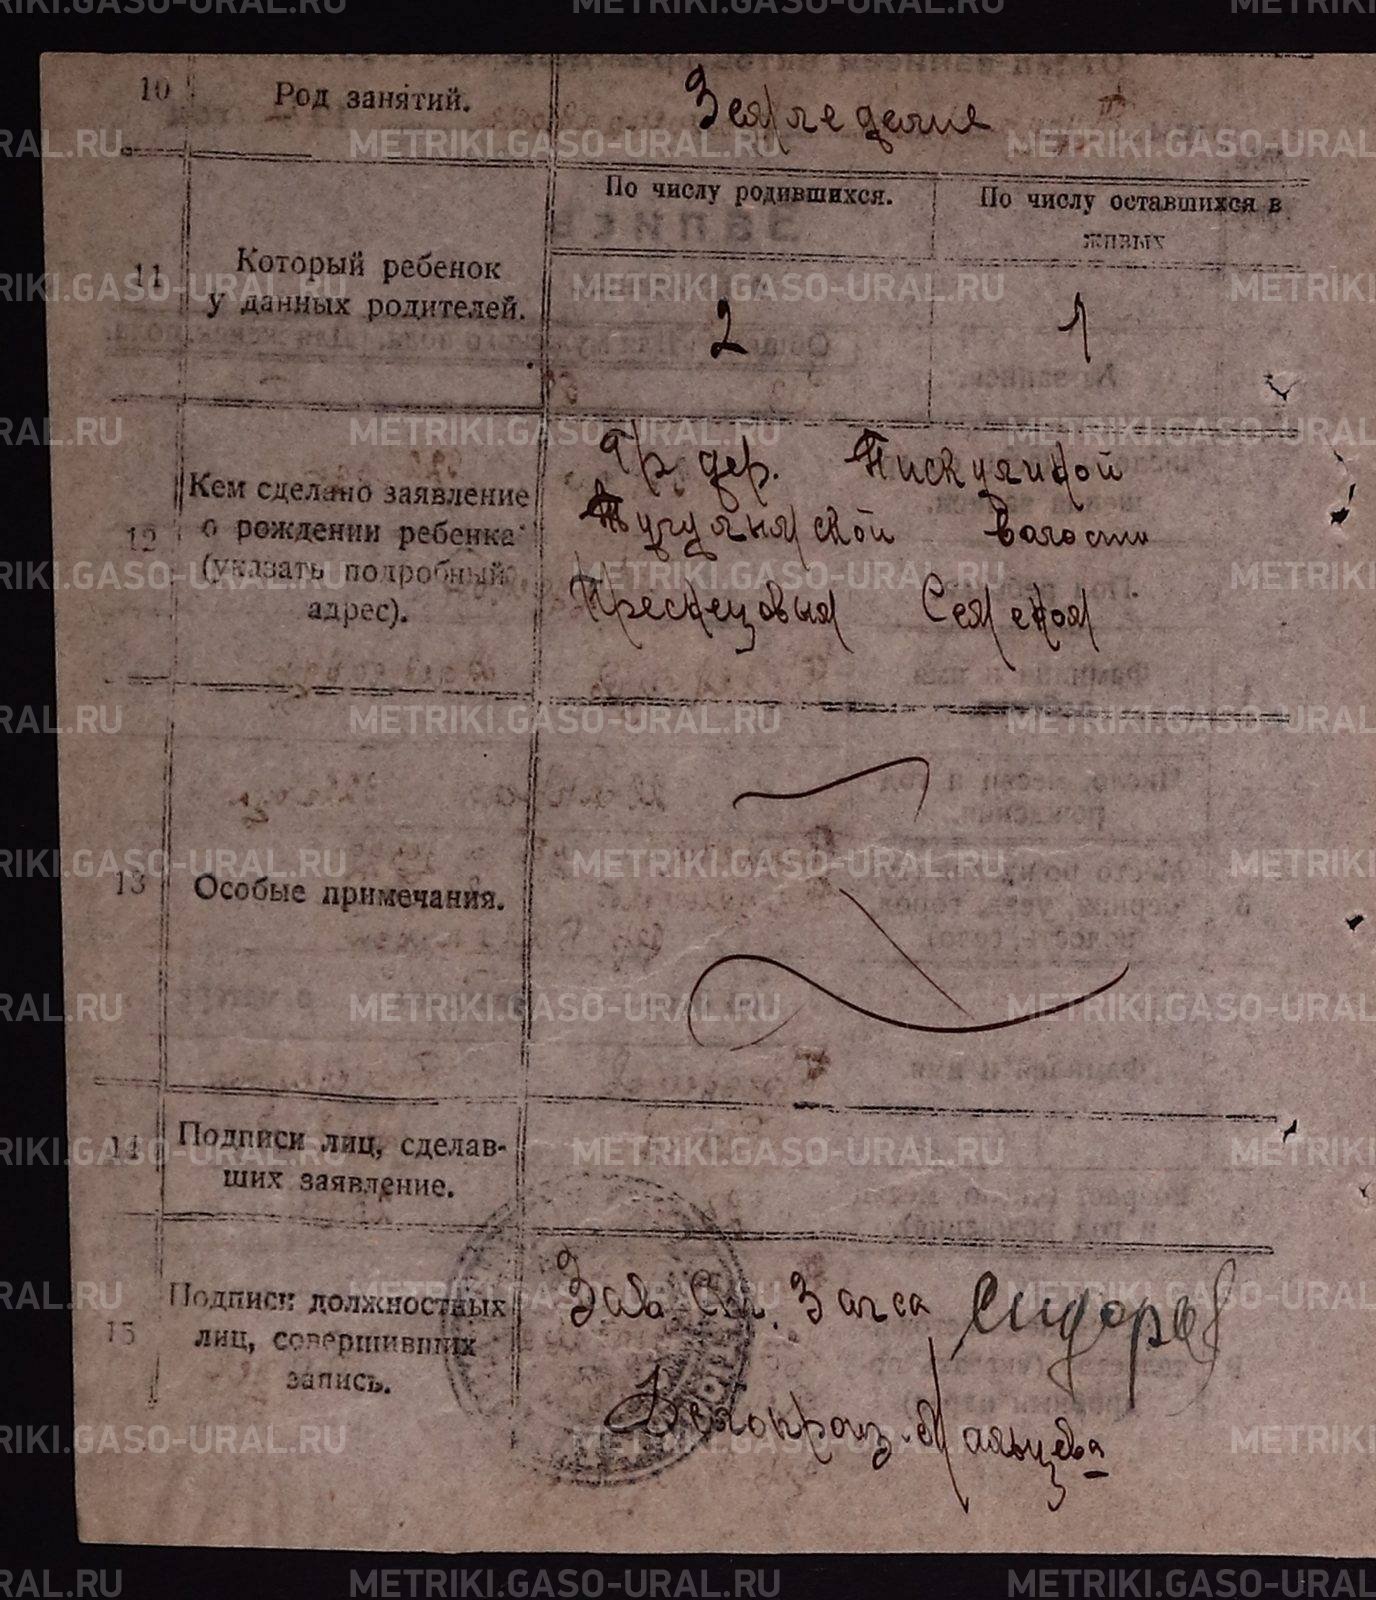 10 Род занятий. Земледелие
11 Который ребенок у данных родителей.
По числу родившихся. По числу оставшихся в живых
2 1
12 Кем сделано заявление о рождении ребенка (указать подробный адрес).
Гр дер. Пискулиной
волости
Семеном
13 Особые примечания.
14 Подписи лиц, сделавших заявление.
15 Подписи должностных лиц, совершивших запись.
Загса Сидоров
Мальцева
METRIKI.GASO-URAL.RU